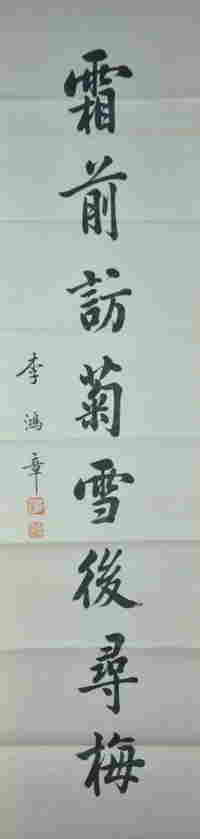 霜前訪菊雪後尋梅
李鴻章